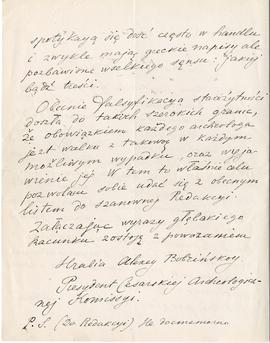 spotykają się dość często w handlu
i zwykle mają greckie napisy ale
pozbawione wszelkiego sensu i jakiej
bądź treści.
Obecnie falsyfikacya starożytności
doszła do takich szerokich granic,
że obowiązkiem każdego archeologa
jest walka z takową w każdym
możliwym wypadku, oraz wyja-
wienie jej. W tem to właśnie celu
pozwalam sobie udać się z obecnym
listem do szanownej Redakcyi.
Załączając wyrazy głębokiego
szacunku zostaję z poważaniem
Hrabia Alexey Bobrinskoy.
Prezydent Cesarskiej Archeologicz-
nej Komissyi.
P.S. (Do Redakcyi)